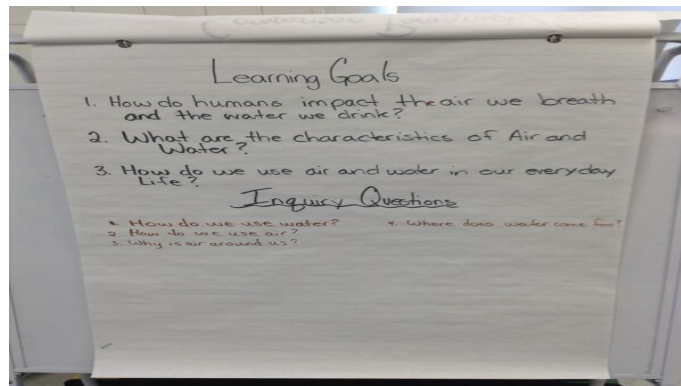 Learning Goals
1. How do humans impact the air we breath
and the water we drink?
2. What are the characteristics of Air and
Water?
3. How do we use air and water in our everyday
Life?
Inquiry Questions
1. How do we use water?
2. How do we use air?
3. Why is air around us?
4. Where does water come from?